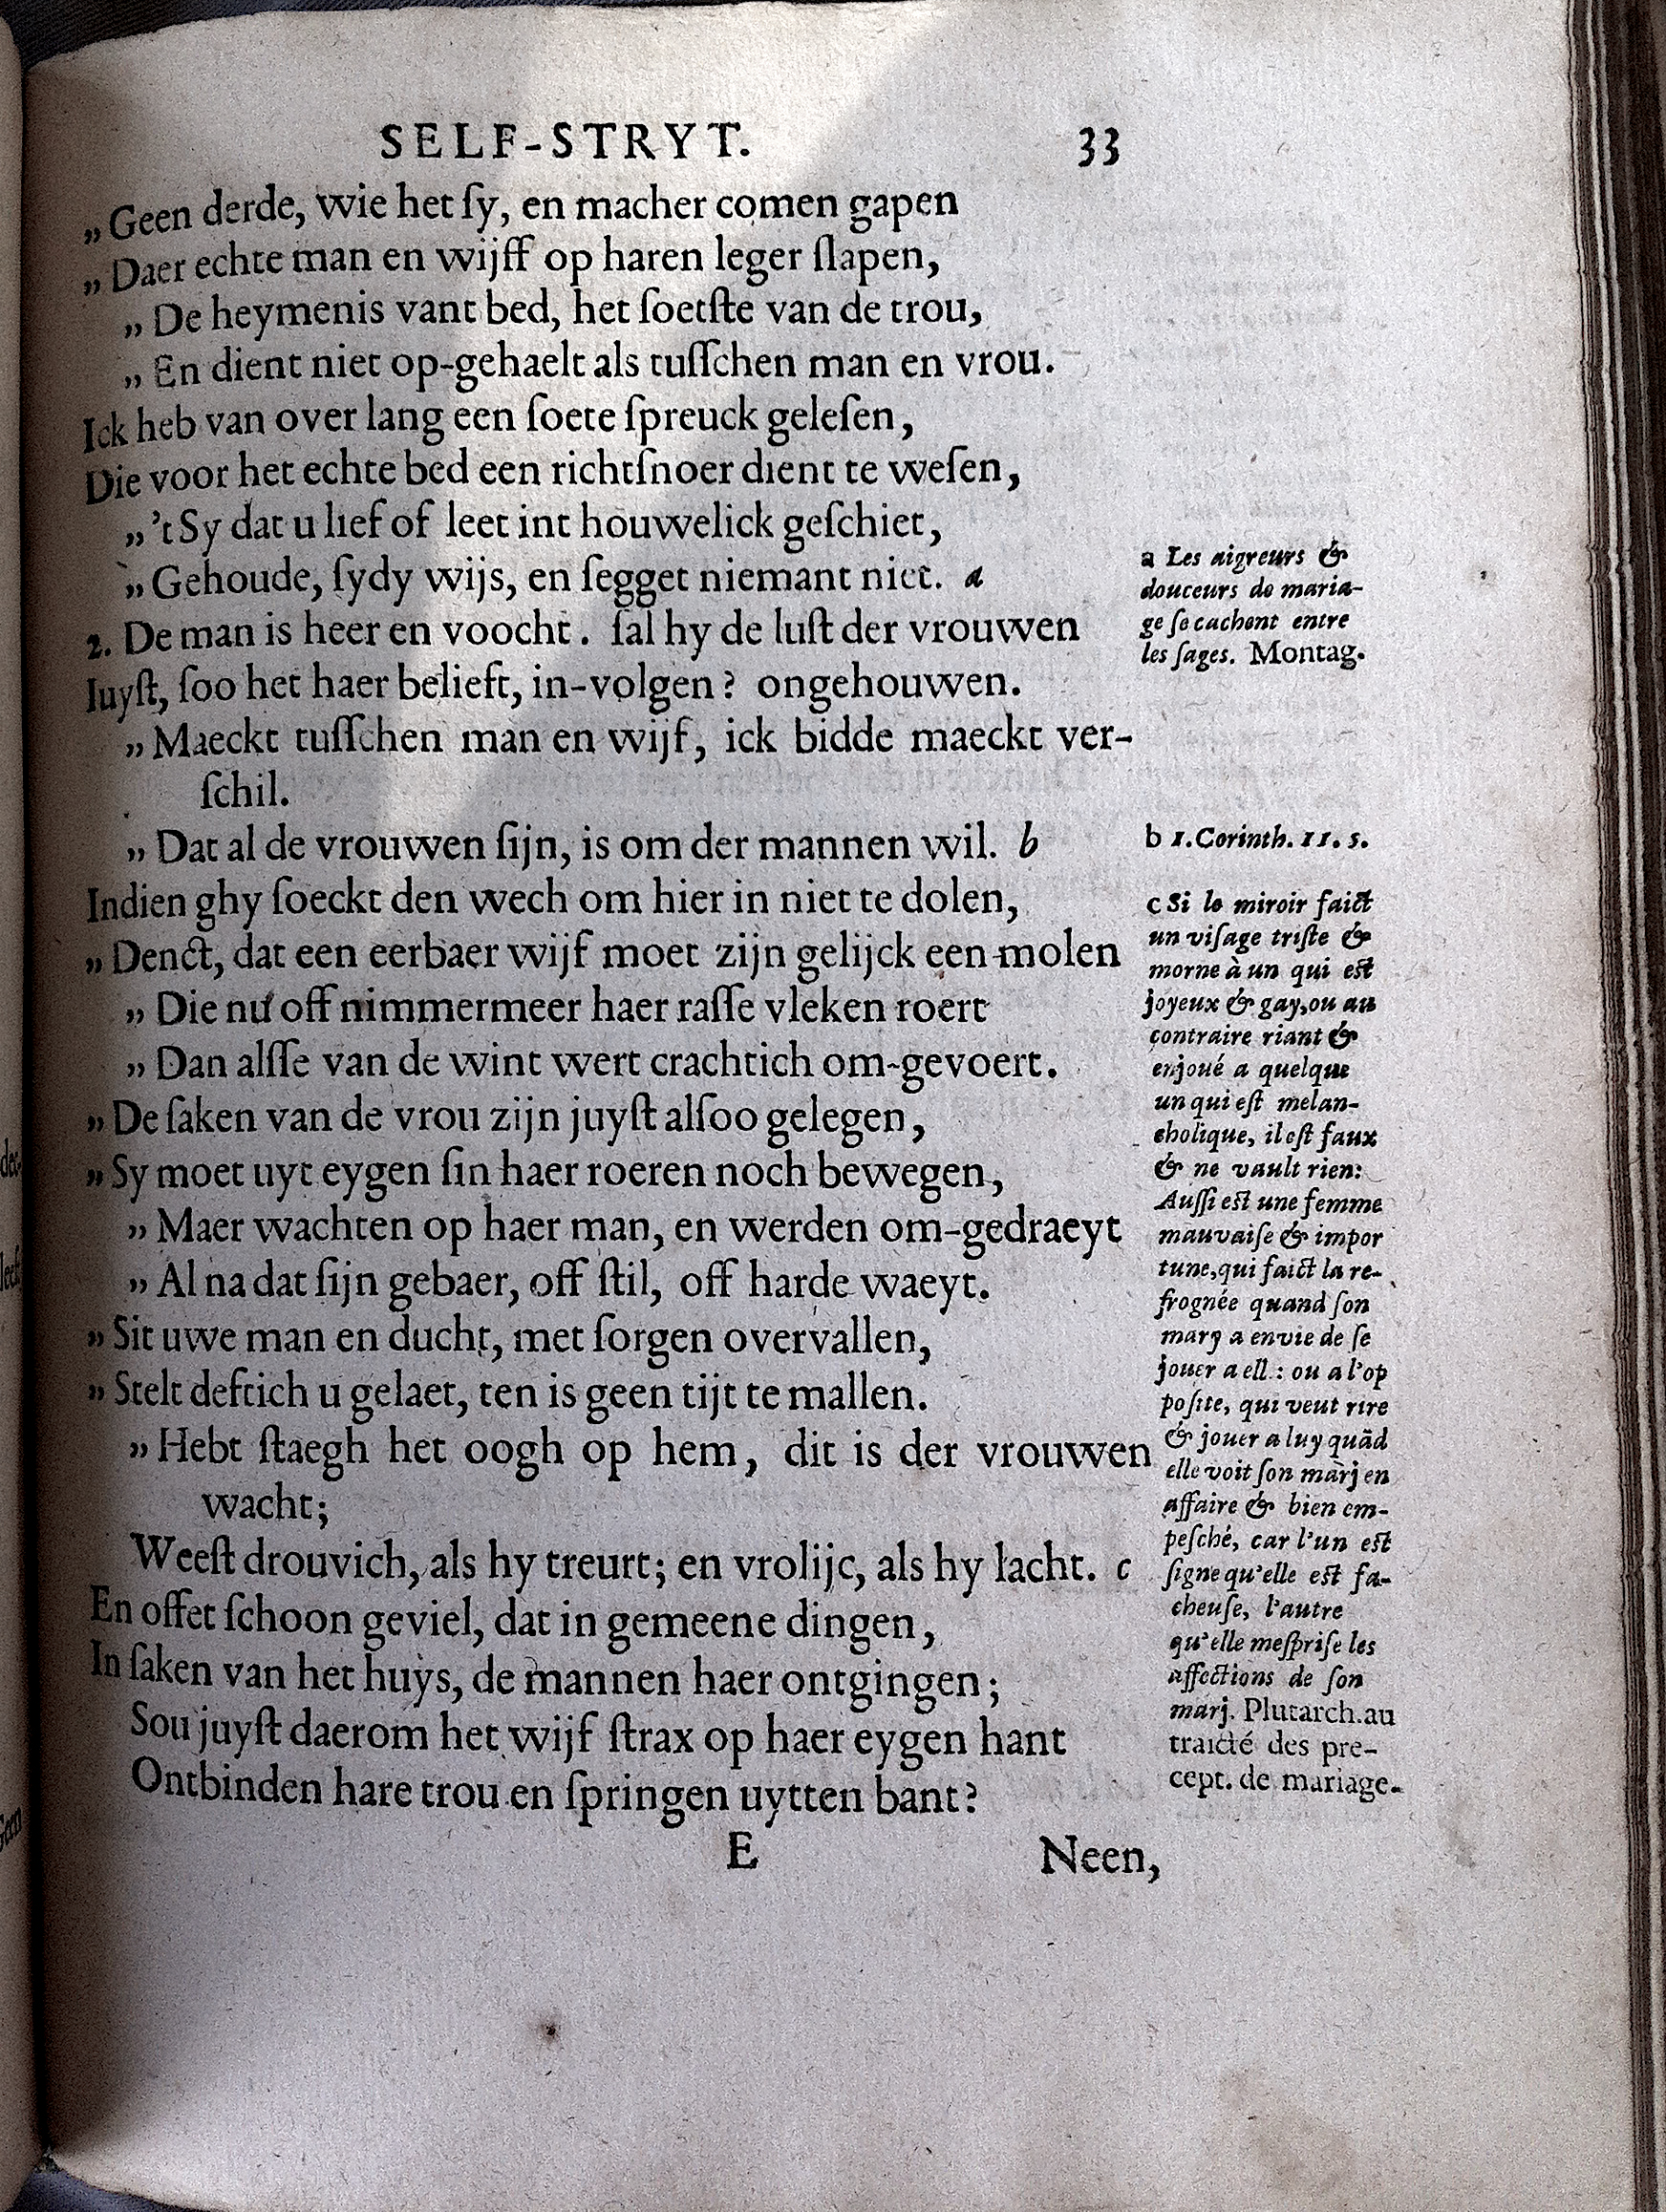 SELF-STRYT. 33
„Geen derde, wie het ſy, en macher comen gapen
„Daer echte man en wijff op haren leger ſlapen,
„De heymenis vant bed, het ſoetſte van de trou,
„En dient niet op-gehaelt als tuſſchen man en vrou.
Ick heb van over lang een ſoete ſpreuck geleſen,
Die voor het echte bed een richtſnoer dient te weſen,
„'t Sy dat u lief of leet int houwelick geſchiet,
„Gehoude, ſydy wijs, en ſegget niemant niet. a
2. De man is heer en voocht. ſal hy de luſt der vrouwen
Iuyſt, ſoo het haer belieft, in-volgen? ongehouwen.
„Maeckt tuſſchen man en wijf, ick bidde maeckt ver-
ſchil.
„Dat al de vrouwen ſijn, is om der mannen wil. b
Indien ghy ſoeckt den wech om hier in niet te dolen,
„Denct, dat een eerbaer wijf moet zijn gelijck een molen
„Die nu off nimmermeer haer raſſe vleken roert
„Dan alſſe van de wint wert crachtich om-gevoert.
„De ſaken van de vrou zijn juyſt alſoo gelegen,
„Sy moet uyt eygen ſin haer roeren noch bewegen,
„Maer wachten op haer man, en werden om-gedraeyt
„Al na dat ſijn gebaer, off ſtil, off harde waeyt.
„Sit uwe man en ducht, met ſorgen overvallen,
„Stelt deftich u gelaet, ten is geen tijt te mallen.
„Hebt ſtaegh het oogh op hem, dit is der vrouwen
wacht;
Weeſt drouvich, als hy treurt; en vrolijc, als hy lacht. c
En offet ſchoon geviel, dat in gemeene dingen,
In ſaken van het huys, de mannen haer ontgingen;
Sou juyſt daerom het wijf ſtrax op haer eygen hant
Ontbinden hare trou en ſpringen uytten bant?
E Neen,
a Les aigreurs &
douceurs de maria-
ge ſe cachent entre
les ſages. Montag.
b 1. Corinth. 11. 5.
c Si le miroir faict
un viſage triſte &
morne à un qui est
joyeux & gay, ou au
contraire riant &
enjoué a quelque
un qui eſt melan-
cholique, il eſt faux
& ne vault rien:
Auſſi est une femme
mauvaiſe & impor
tune, qui faict la re-
frognée quand ſon
mary a envie de ſe
jouer a ell.: ou a l'op
poſite, qui veut rire
& jouer a luy quãd
elle voit ſon marj en
affaire & bien em-
peſché, car l'un est
ſigne qu'elle est fa-
cheuſe, l'autre
qu'elle meſpriſe les
affections de ſon
marj. Plutarch. au
traicté des pre-
cept. de mariage.